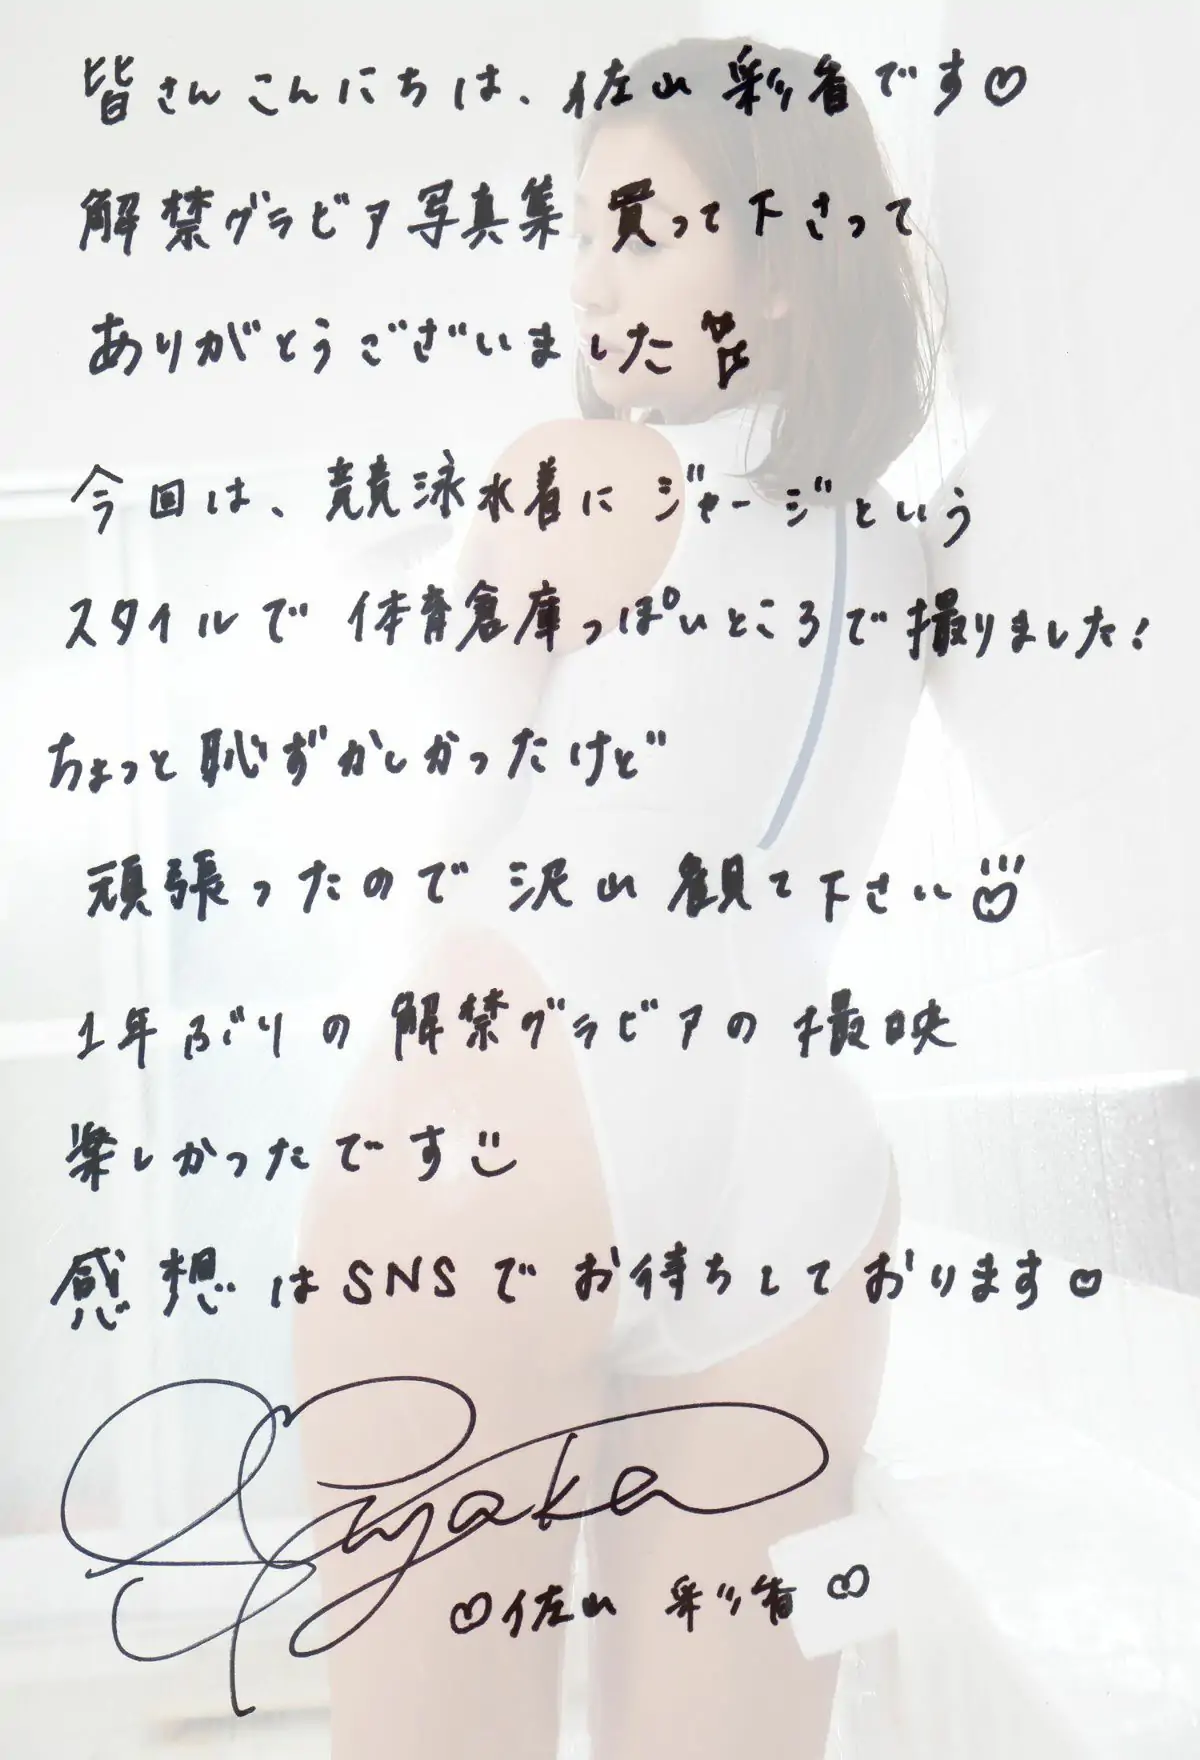 皆さんこんにちは、佐山 彩香です♡
解禁グラビア写真集 買って下さって
ありがとうございました
今回は、競泳水着にジャージという
スタイルで 体育倉庫っぽいところで撮りました!
ちょっと恥ずかしかったけど
頑張ったので 沢山 観て下さい
1年ぶりの 解禁グラビアの 撮映
楽しかったです
感想はSNSで お待ちしております♡
Sayaka
♡佐山 彩香♡